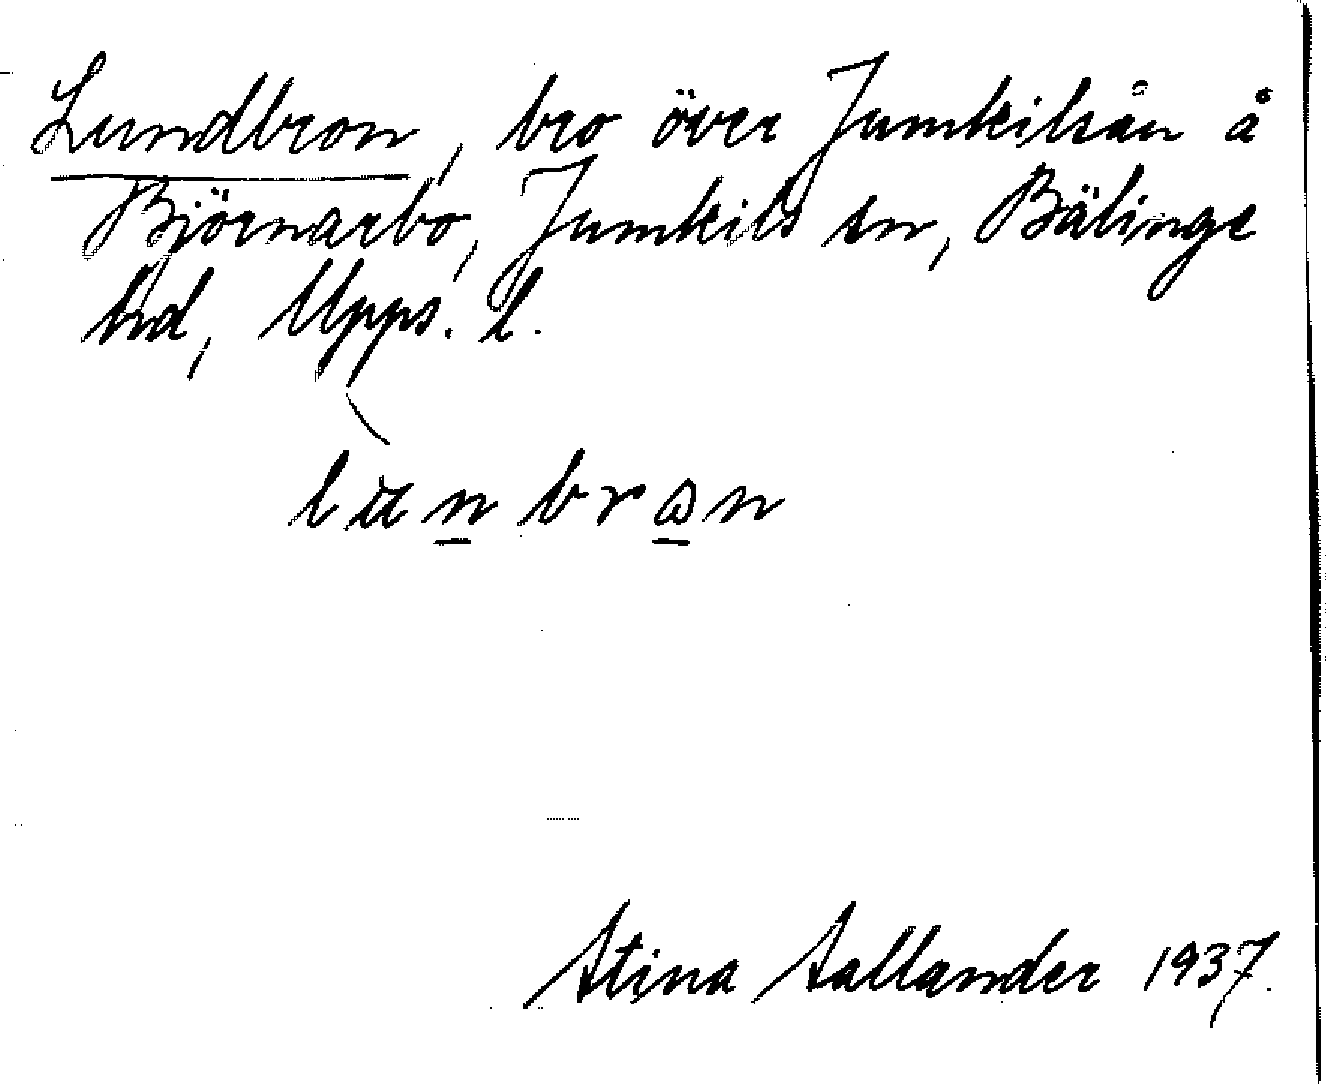 Lundbron, bro över Jumkilsån å
Björnarbo, Jumkils sn, Bälinge
hd, Upps. l.
lu̇n̲brɷ̲n
Stina Sallander 1937.